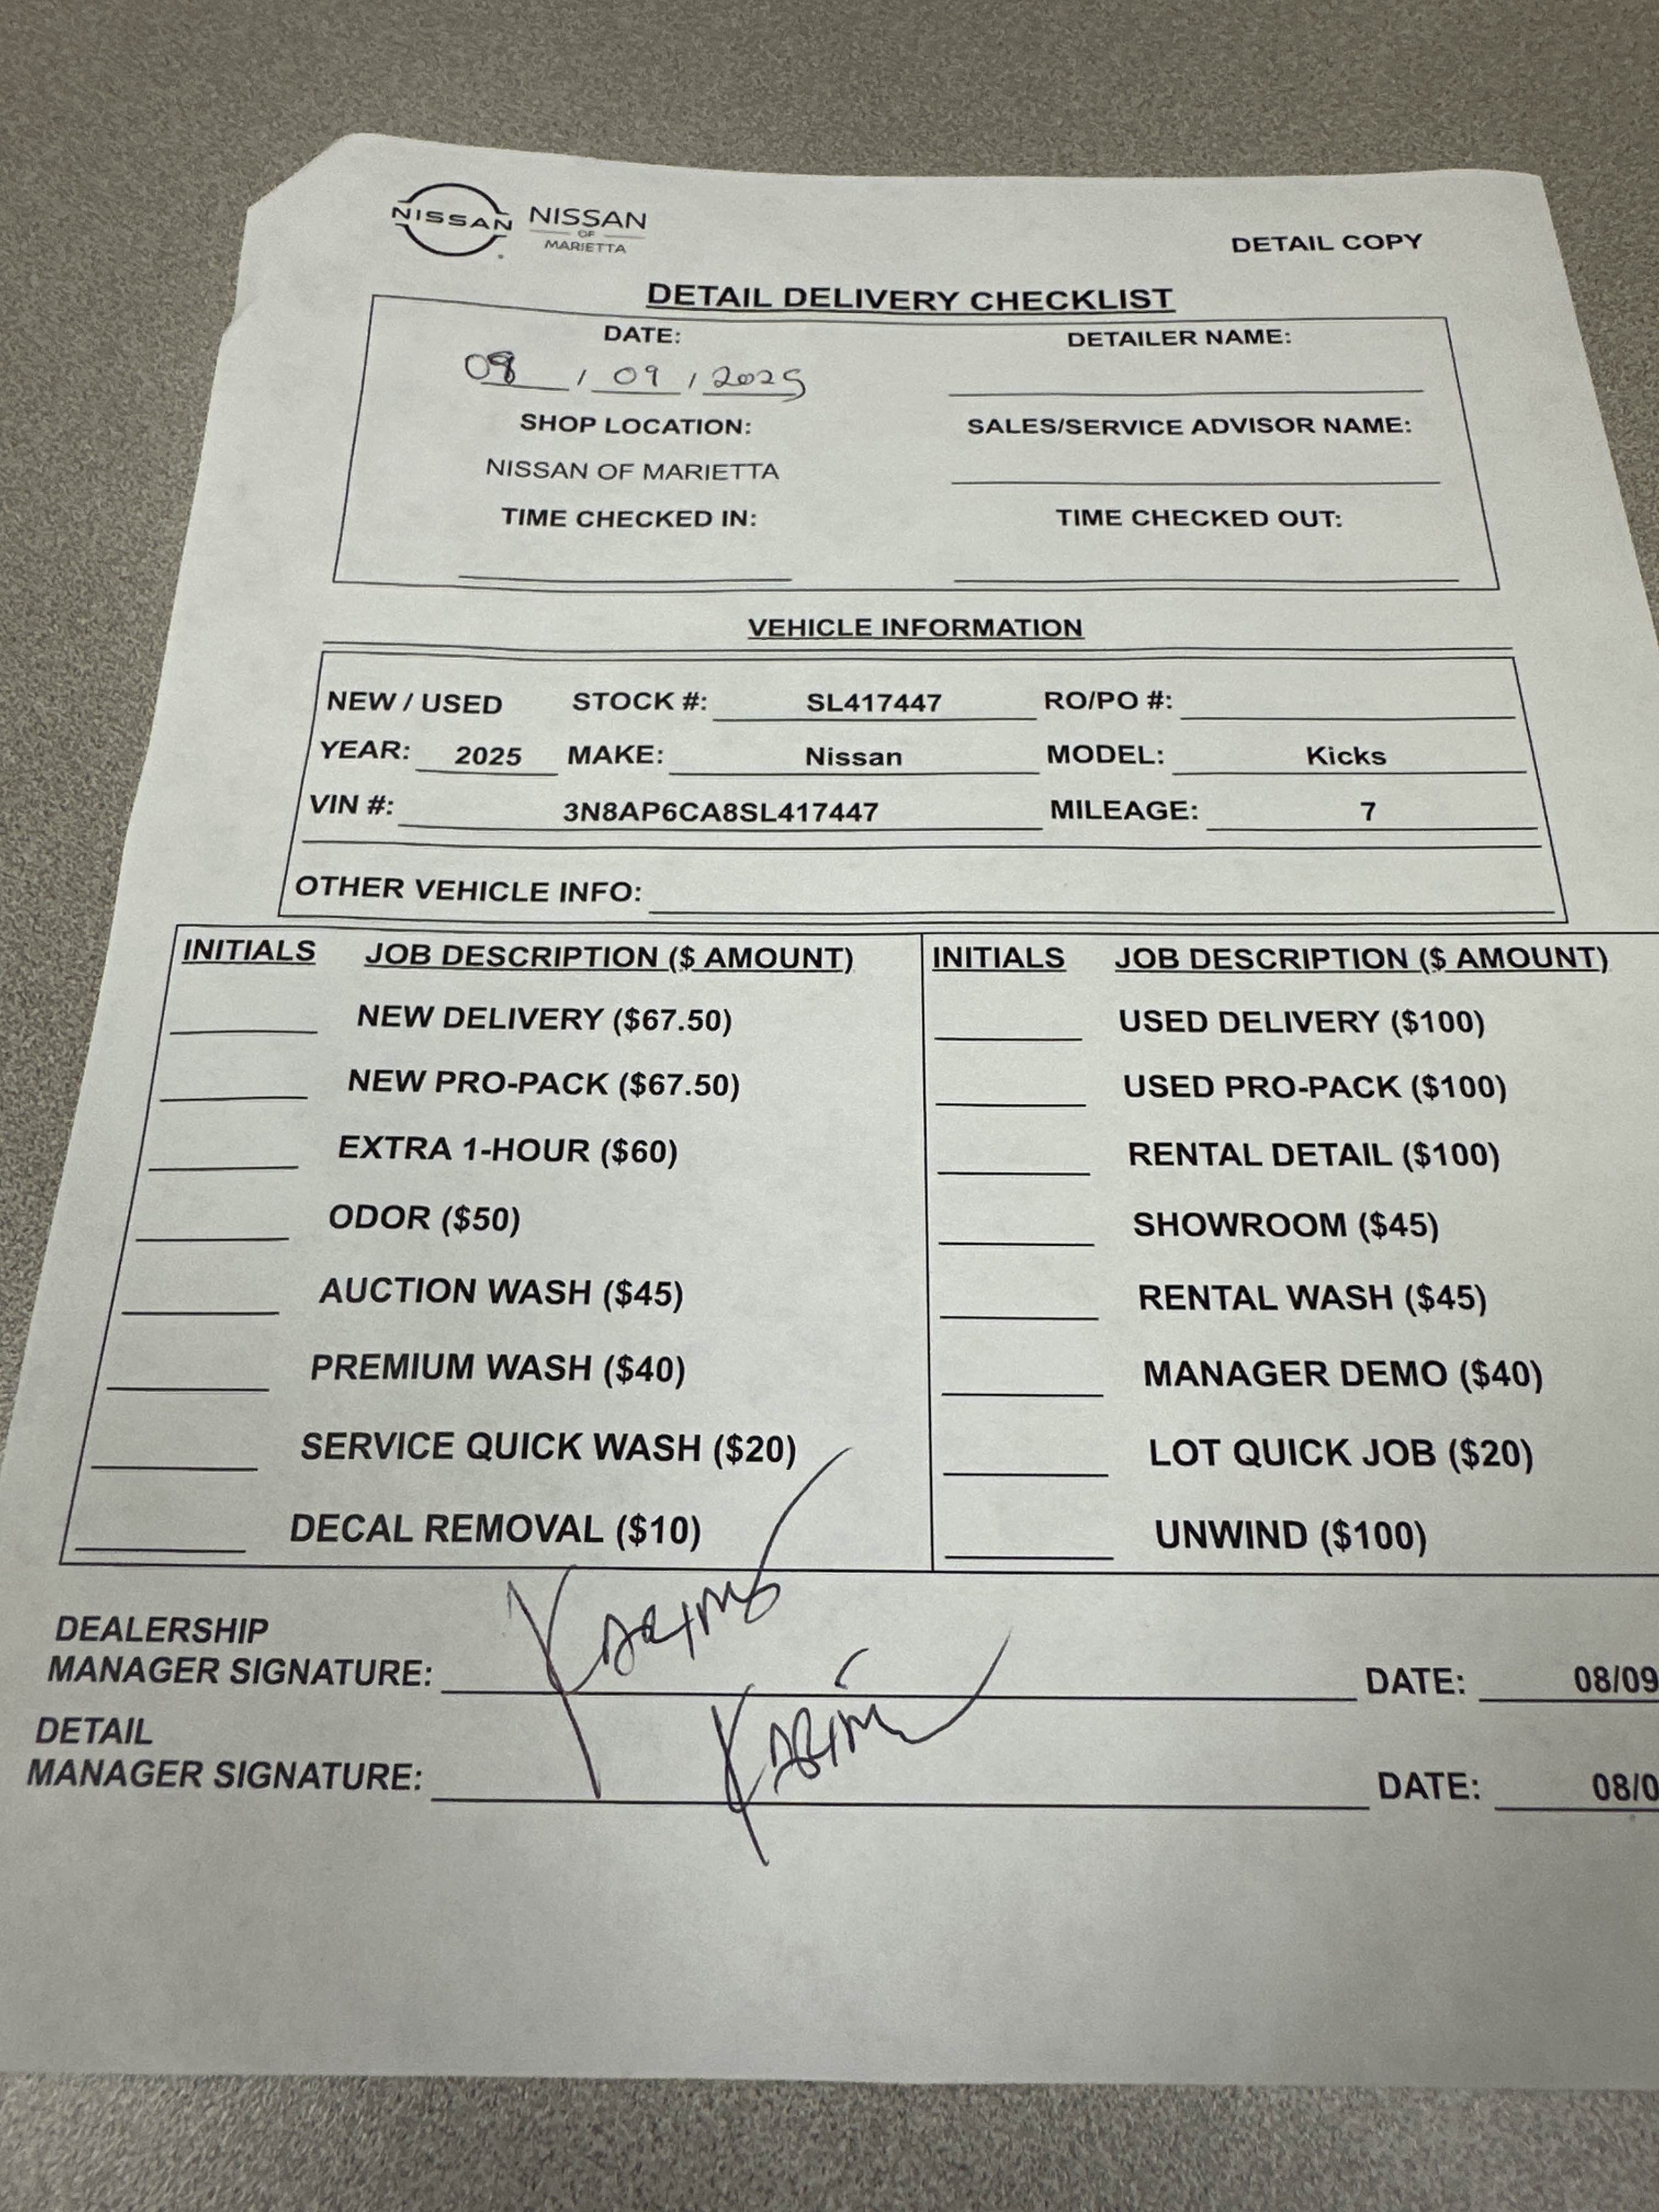 NISSAN NISSAN
OF
MARIETTA
DETAIL COPY
DETAIL DELIVERY CHECKLIST
DATE: DETAILER NAME:
08 / 09 / 2025
SHOP LOCATION: SALES/SERVICE ADVISOR NAME:
NISSAN OF MARIETTA
TIME CHECKED IN: TIME CHECKED OUT:
VEHICLE INFORMATION
NEW / USED STOCK #: SL417447 RO/PO #:
YEAR: 2025 MAKE: Nissan MODEL: Kicks
VIN #: 3N8AP6CA8SL417447 MILEAGE: 7
OTHER VEHICLE INFO:
INITIALS JOB DESCRIPTION ($ AMOUNT) INITIALS JOB DESCRIPTION ($ AMOUNT)
NEW DELIVERY ($67.50) USED DELIVERY ($100)
NEW PRO-PACK ($67.50) USED PRO-PACK ($100)
EXTRA 1-HOUR ($60) RENTAL DETAIL ($100)
ODOR ($50) SHOWROOM ($45)
AUCTION WASH ($45) RENTAL WASH ($45)
PREMIUM WASH ($40) MANAGER DEMO ($40)
SERVICE QUICK WASH ($20) LOT QUICK JOB ($20)
DECAL REMOVAL ($10) UNWIND ($100)
DEALERSHIP
MANAGER SIGNATURE: DATE: 08/09
DETAIL
MANAGER SIGNATURE: DATE: 08/0